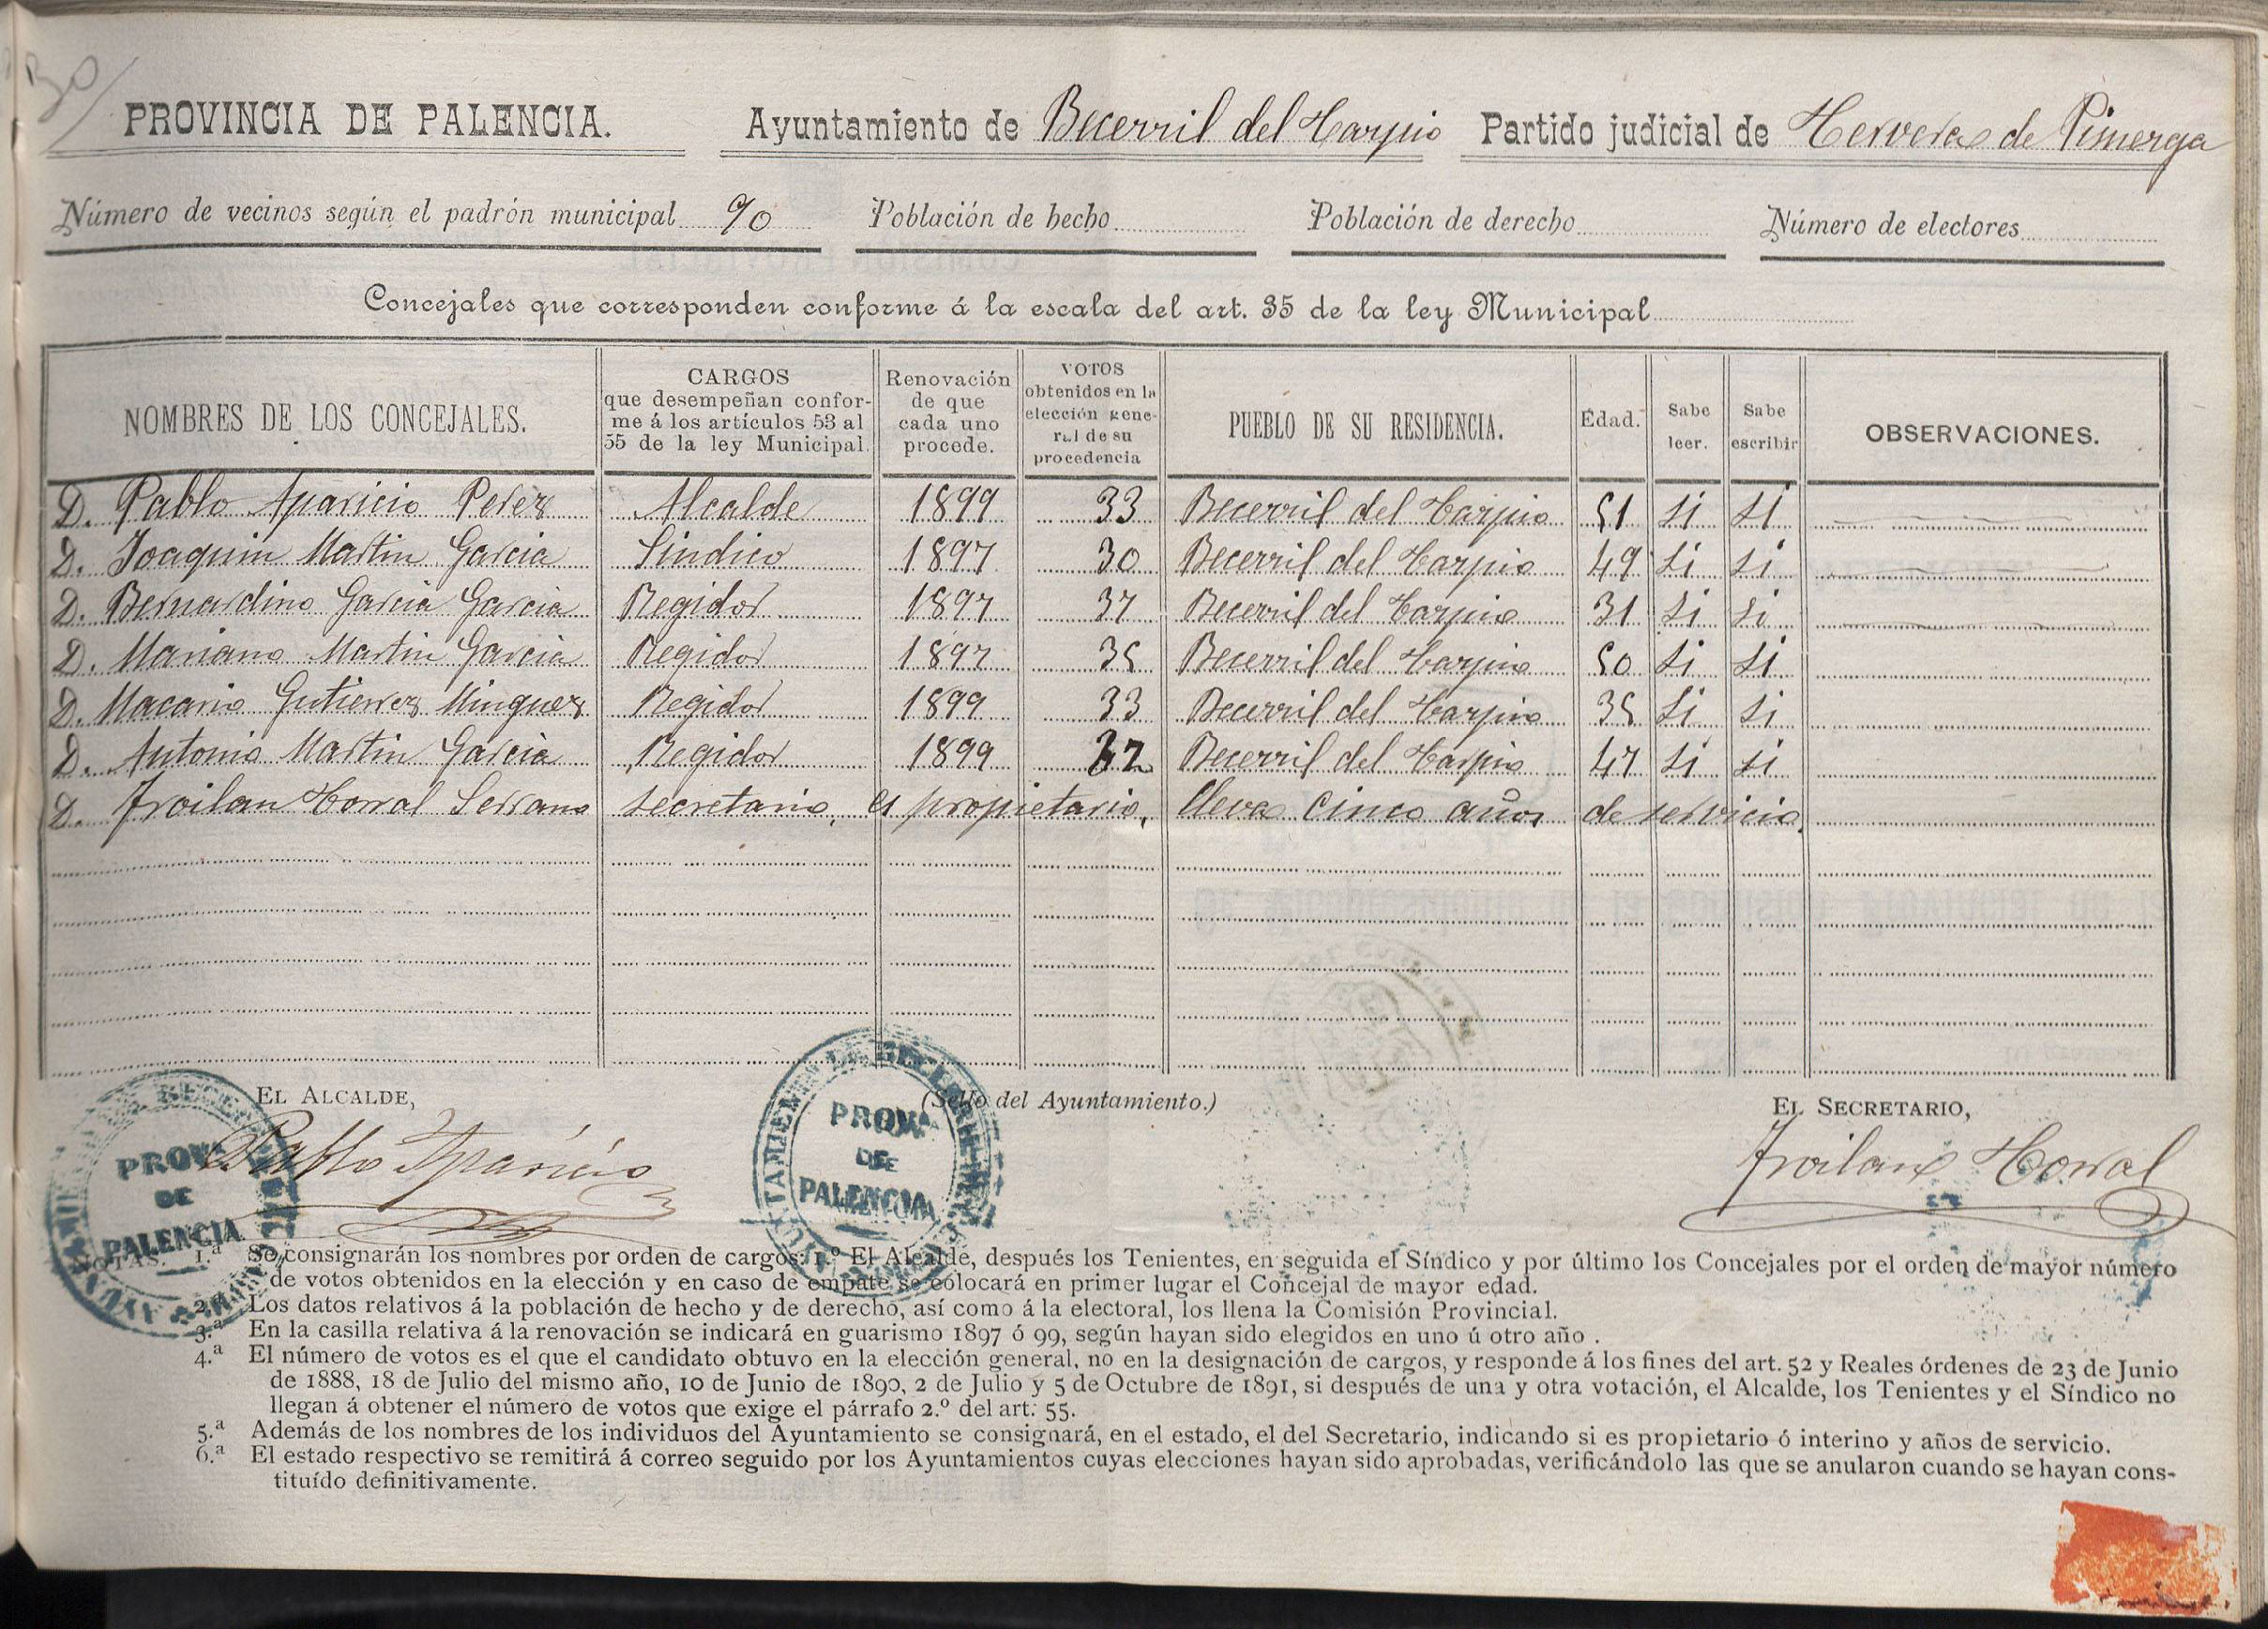 30
PROVINCIA DE PALENCIA. Ayuntamiento de Becerril del Carpio Partido judicial de Cervera de Pisuerga
Número de vecinos según el padrón municipal 90 Población de hecho Población de derecho Número de electores
Concejales que corresponden conforme á la escala del art. 35 de la ley Municipal
NOMBRES DE LOS CONCEJALES. CARGOS que desempeñan conforme á los artículos 53 al 55 de la ley Municipal. Renovación de que cada uno procede. VOTOS obtenidos en la elección general de su procedencia PUEBLO DE SU RESIDENCIA. Edad. Sabe leer. Sabe escribir OBSERVACIONES.
D. Pablo Aparicio Perez Alcalde 1899 33 Becerril del Carpio 51 si si
D. Joaquin Martin Garcia Sindico 1897 30 Becerril del Carpio 49 si si
D. Bernardino Garcia Garcia Regidor 1897 37 Becerril del Carpio 31 si si
D. Mariano Martin Garcia Regidor 1897 35 Becerril del Carpio 50 si si
D. Macario Gutierrez Minguez Regidor 1899 33 Becerril del Carpio 35 si si
D. Antonio Martin Garcia Regidor 1899 32 Becerril del Carpio 47 si si
D. Froilan Corral Serrano secretario, es propietario, lleva cinco años de servicio.
EL ALCALDE, (Sello del Ayuntamiento.) EL SECRETARIO,
Pablo Aparicio Froilan Corral
PROVA DE PALENCIA
AYUNTAMIENTO DE BECERRIL DEL CARPIO PROVA DE PALENCIA
NOTAS. 1.ª Se consignarán los nombres por orden de cargos: 1.º El Alcalde, después los Tenientes, en seguida el Síndico y por último los Concejales por el orden de mayor número
de votos obtenidos en la elección y en caso de empate se colocará en primer lugar el Concejal de mayor edad.
2.ª Los datos relativos á la población de hecho y de derecho, así como á la electoral, los llena la Comisión Provincial.
3.ª En la casilla relativa á la renovación se indicará en guarismo 1897 ó 99, según hayan sido elegidos en uno ú otro año .
4.ª El número de votos es el que el candidato obtuvo en la elección general, no en la designación de cargos, y responde á los fines del art. 52 y Reales órdenes de 23 de Junio
de 1888, 18 de Julio del mismo año, 10 de Junio de 1890, 2 de Julio y 5 de Octubre de 1891, si después de una y otra votación, el Alcalde, los Tenientes y el Síndico no
llegan á obtener el número de votos que exige el párrafo 2.º del art. 55.
5.ª Además de los nombres de los individuos del Ayuntamiento se consignará, en el estado, el del Secretario, indicando si es propietario ó interino y años de servicio.
6.ª El estado respectivo se remitirá á correo seguido por los Ayuntamientos cuyas elecciones hayan sido aprobadas, verificándolo las que se anularon cuando se hayan cons-
tituído definitivamente.